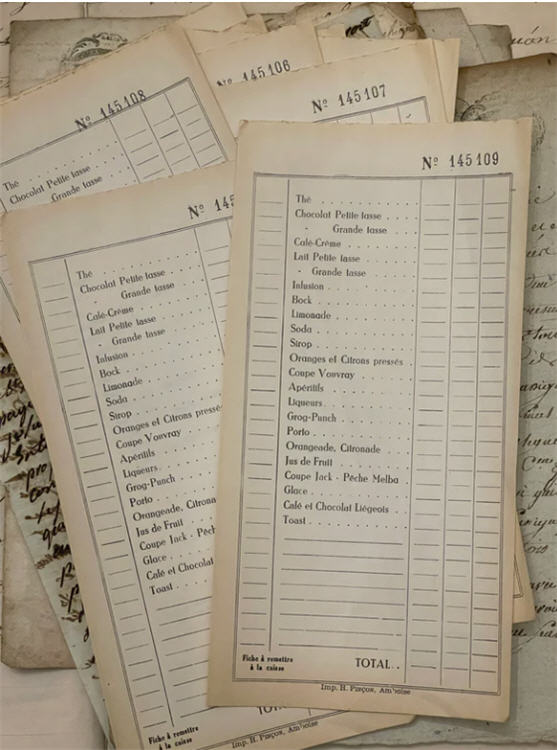 Nº 145106
Nº 145108
Nº 145107
Thé
Chocolat Petite tasse
Grande tasse
Nº 145
Thé
Chocolat Petite tasse
Grande tasse
Café-Crème
Lait Petite tasse
Grande tasse
Infusion
Bock
Limonade
Soda
Sirop
Oranges et Citrons pressés
Coupe Vouvray
Apéritifs
Liqueurs
Grog-Punch
Porto
Orangeade, Citrona
Jus de Fruit
Coupe Jack - Pêch
Glace
Café et Chocolat
Toast
Fiche à remettre
à la caisse
Imp. H. Pinçon, Amboise
Nº 145109
Thé
Chocolat Petite tasse
- Grande tasse
Café-Crème
Lait Petite tasse
- Grande tasse
Infusion
Bock
Limonade
Soda
Sirop
Oranges et Citrons pressés
Coupe Vouvray
Apéritifs
Liqueurs
Grog-Punch
Porto
Orangeade, Citronade
Jus de Fruit
Coupe Jack - Pêche Melba
Glace
Café et Chocolat Liégeois
Toast
Fiche à remettre
à la caisse
TOTAL
Imp. H. Pinçon, Amboise